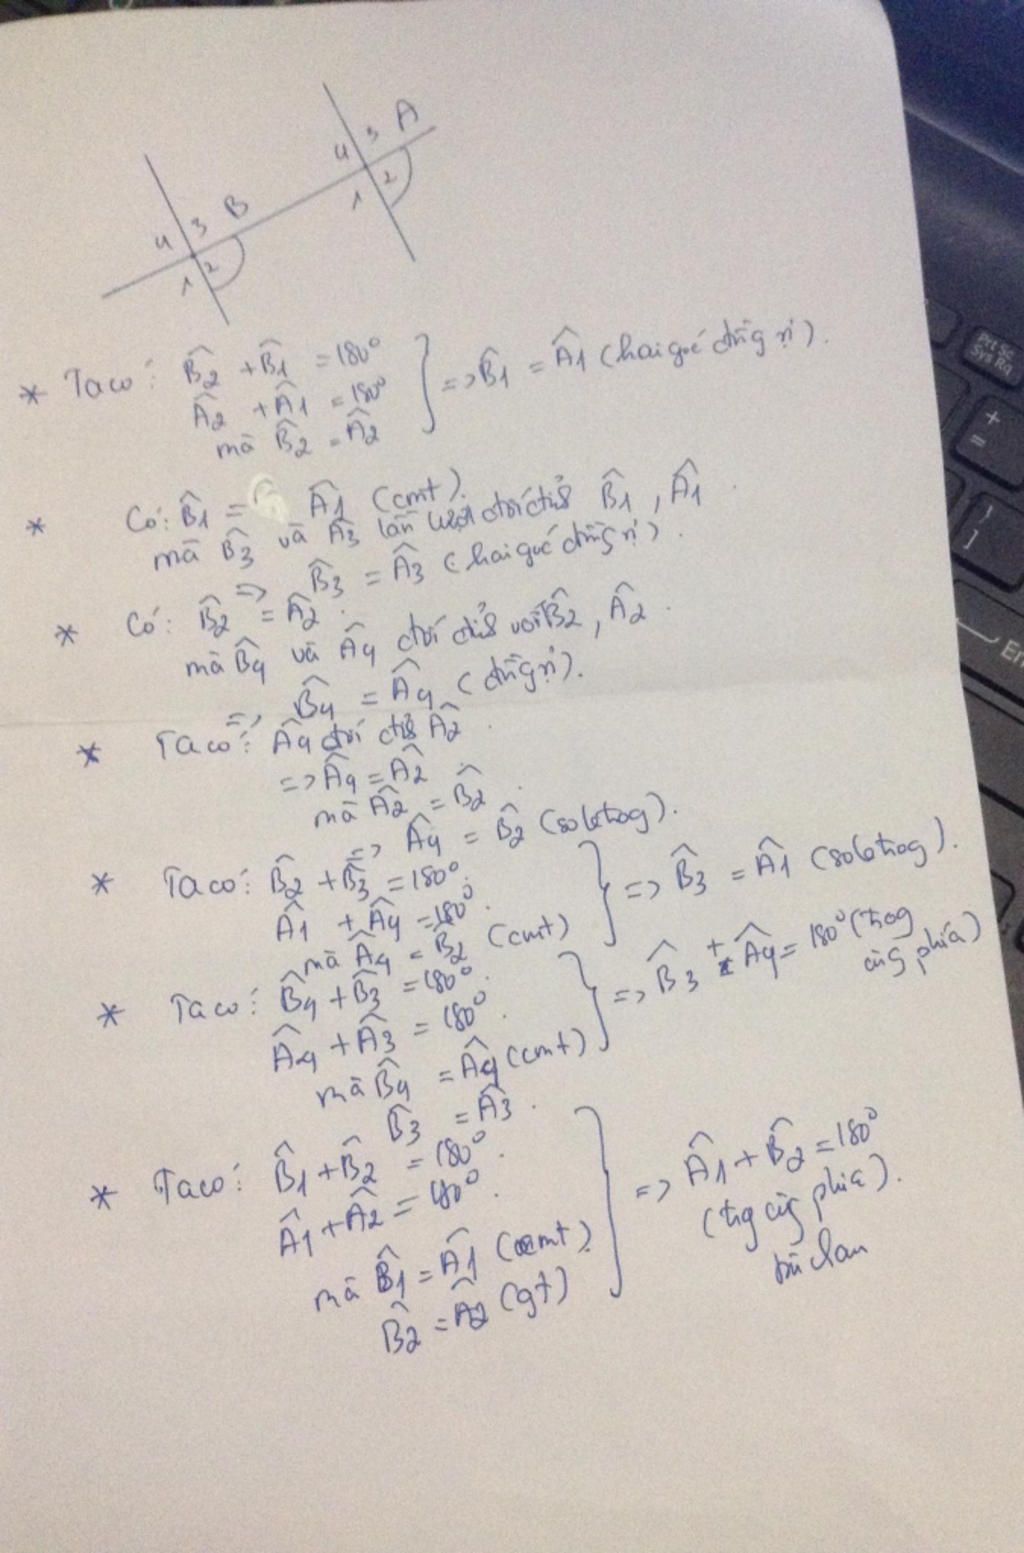 A
4 3
1 2
B
4 3
1 2
* Ta có: B̂2 + B̂1 = 180°
Â2 + Â1 = 180°
mà B̂2 = Â2
} => B̂1 = Â1 (hai góc đồng vị).
* Có: B̂1 = Â1 (cmt).
mà B̂3 và Â3 lần lượt đối đỉnh B̂1, Â1.
=> B̂3 = Â3 (hai góc đồng vị).
* Có: B̂2 = Â2.
mà B̂4 và Â4 đối đỉnh với B̂2, Â2.
=> B̂4 = Â4 (đồng vị).
* Ta có: Â4 đối đỉnh Â2.
=> Â4 = Â2
mà Â2 = B̂2.
=> Â4 = B̂2 (so le trog).
* Ta có: B̂2 + B̂3 = 180°.
Â1 + Â4 = 180°.
mà Â4 = B̂2 (cmt)
} => B̂3 = Â1 (so le trog).
* Ta có: B̂4 + B̂3 = 180°.
Â4 + Â3 = 180°.
mà B̂4 = Â4 (cmt)
B̂3 = Â3.
} => B̂3 + Â4 = 180° (trog
cùg phía)
* Ta có: B̂1 + B̂2 = 180°.
Â1 + Â2 = 180°.
mà B̂1 = Â1 (cmt)
B̂2 = Â2 (gt)
} => Â1 + B̂2 = 180°
(trg cùg phía).
bù nhau
PrtSc
SysRq
+
=
}
]
En